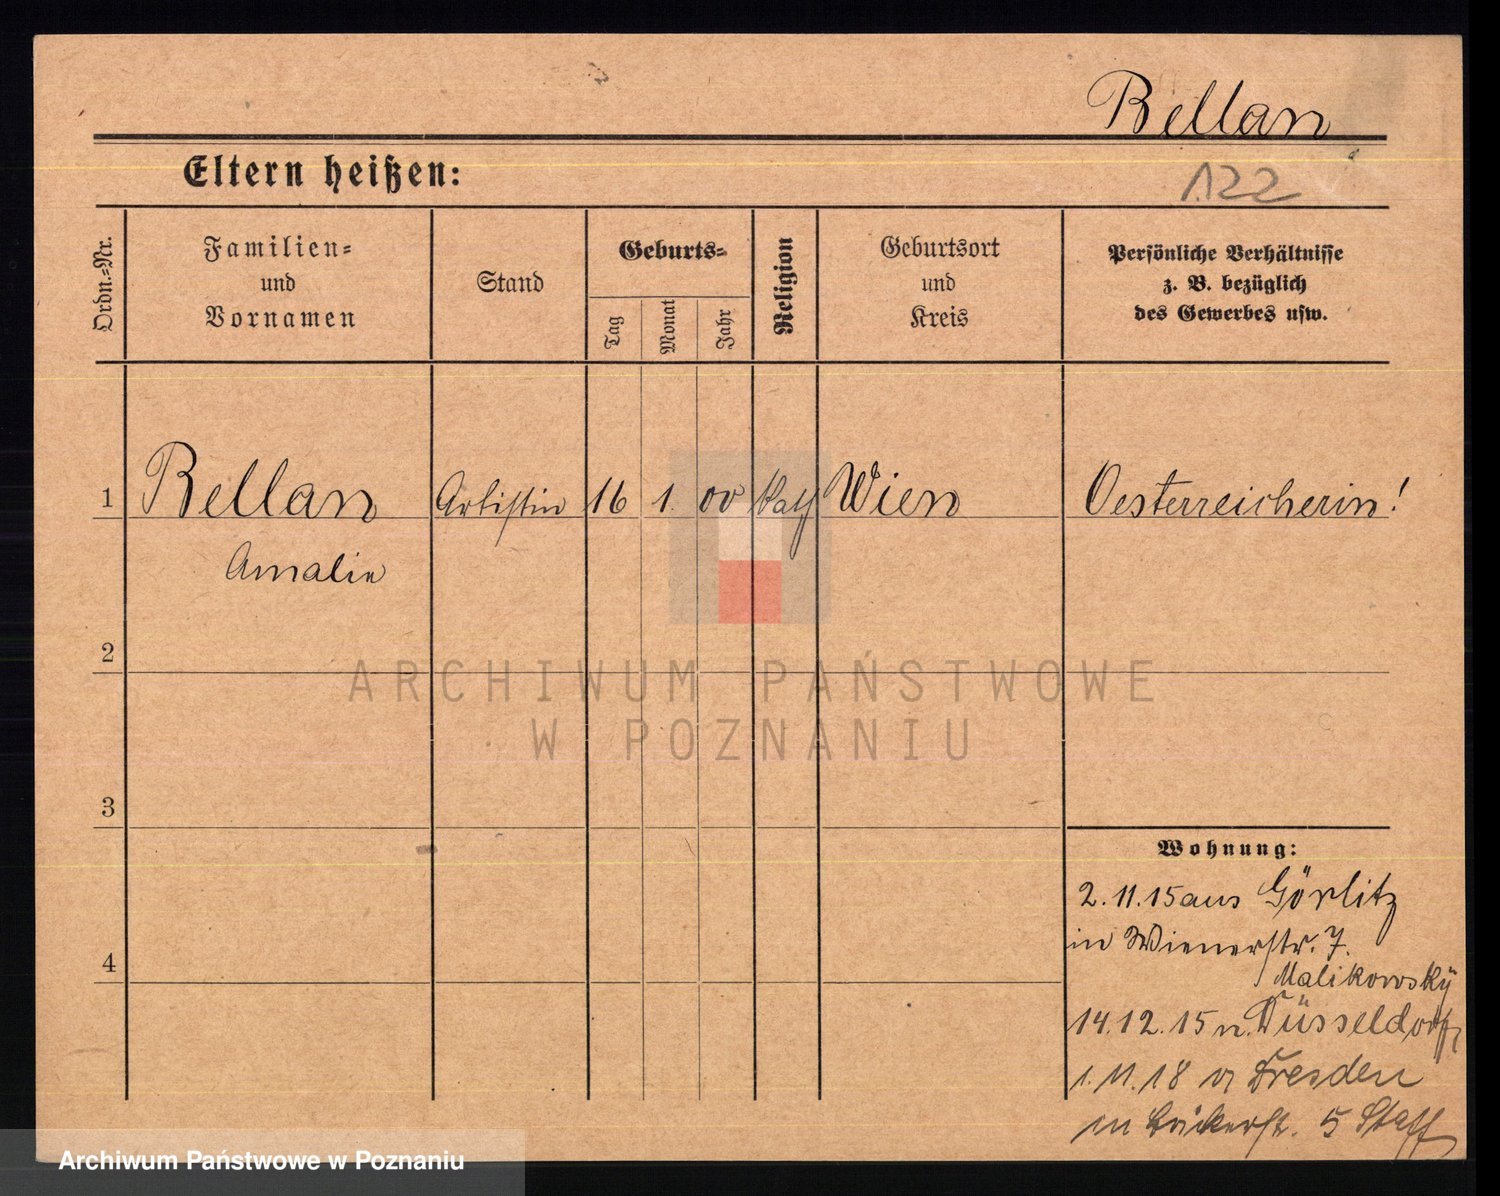 Bellan
Eltern heißen:
122
Ordn.=Nr.
Familien=
und
Vornamen
Stand
Geburts=
Tag
Monat
Jahr
Religion
Geburtsort
und
Kreis
Persönliche Verhältnisse
z. B. bezüglich
des Gewerbes usw.
1 Bellan Artistin 16 1. 00 Kath Wien Oesterreicherin!
Amalie
2
ARCHIWUM PAŃSTWOWE
W POZNANIU
3
Wohnung:
2.11.15 aus Görlitz
in Wienerstr. 7.
Malikowsky
4
14.12.15 n. Düsseldorf
1.11.18 v Dresden
in Bäckerst. 5 Staff
Archiwum Państwowe w Poznaniu